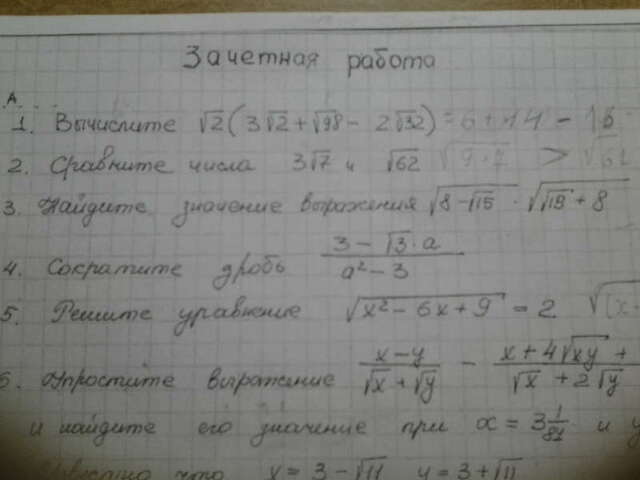 Зачетная работа
А.
1. Вычислите √2(3√2+√98- 2√32) =6+14- 16
2. Сравните числа 3√7 и √62 √9·7 > √62
3. Найдите значение выражения √8-√15 · √√15+8
4. Сократите дробь 3-√3·a / a²-3
5. Решите уравнение √x²-6x+9 = 2
6. Упростите выражение x-y / √x+√y - x+4√xy + / √x+2√y
и найдите его значение при x = 3 1/81 и y
Известно что x = 3-√11 y = 3+√11